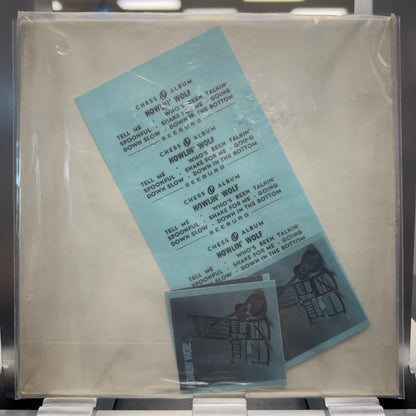 CHESS ALBUM
HOWLIN' WOLF
TELL ME • WHO'S BEEN TALKIN'
SPOONFUL • SHAKE FOR ME • GOING
DOWN SLOW • DOWN IN THE BOTTOM
SEEBURG
CHESS ALBUM
HOWLIN' WOLF
TELL ME • WHO'S BEEN TALKIN'
SPOONFUL • SHAKE FOR ME • GOING
DOWN SLOW • DOWN IN THE BOTTOM
SEEBURG
CHESS ALBUM
HOWLIN' WOLF
TELL ME • WHO'S BEEN TALKIN'
SPOONFUL • SHAKE FOR ME • GOING
DOWN SLOW • DOWN IN THE BOTTOM
SEEBURG
CHESS ALBUM
HOWLIN' WOLF
TELL ME • WHO'S BEEN TALKIN'
SPOONFUL • SHAKE FOR ME • GOING
DOWN SLOW • DOWN IN THE BOTTOM
SEEBURG
HOWLIN' WOLF